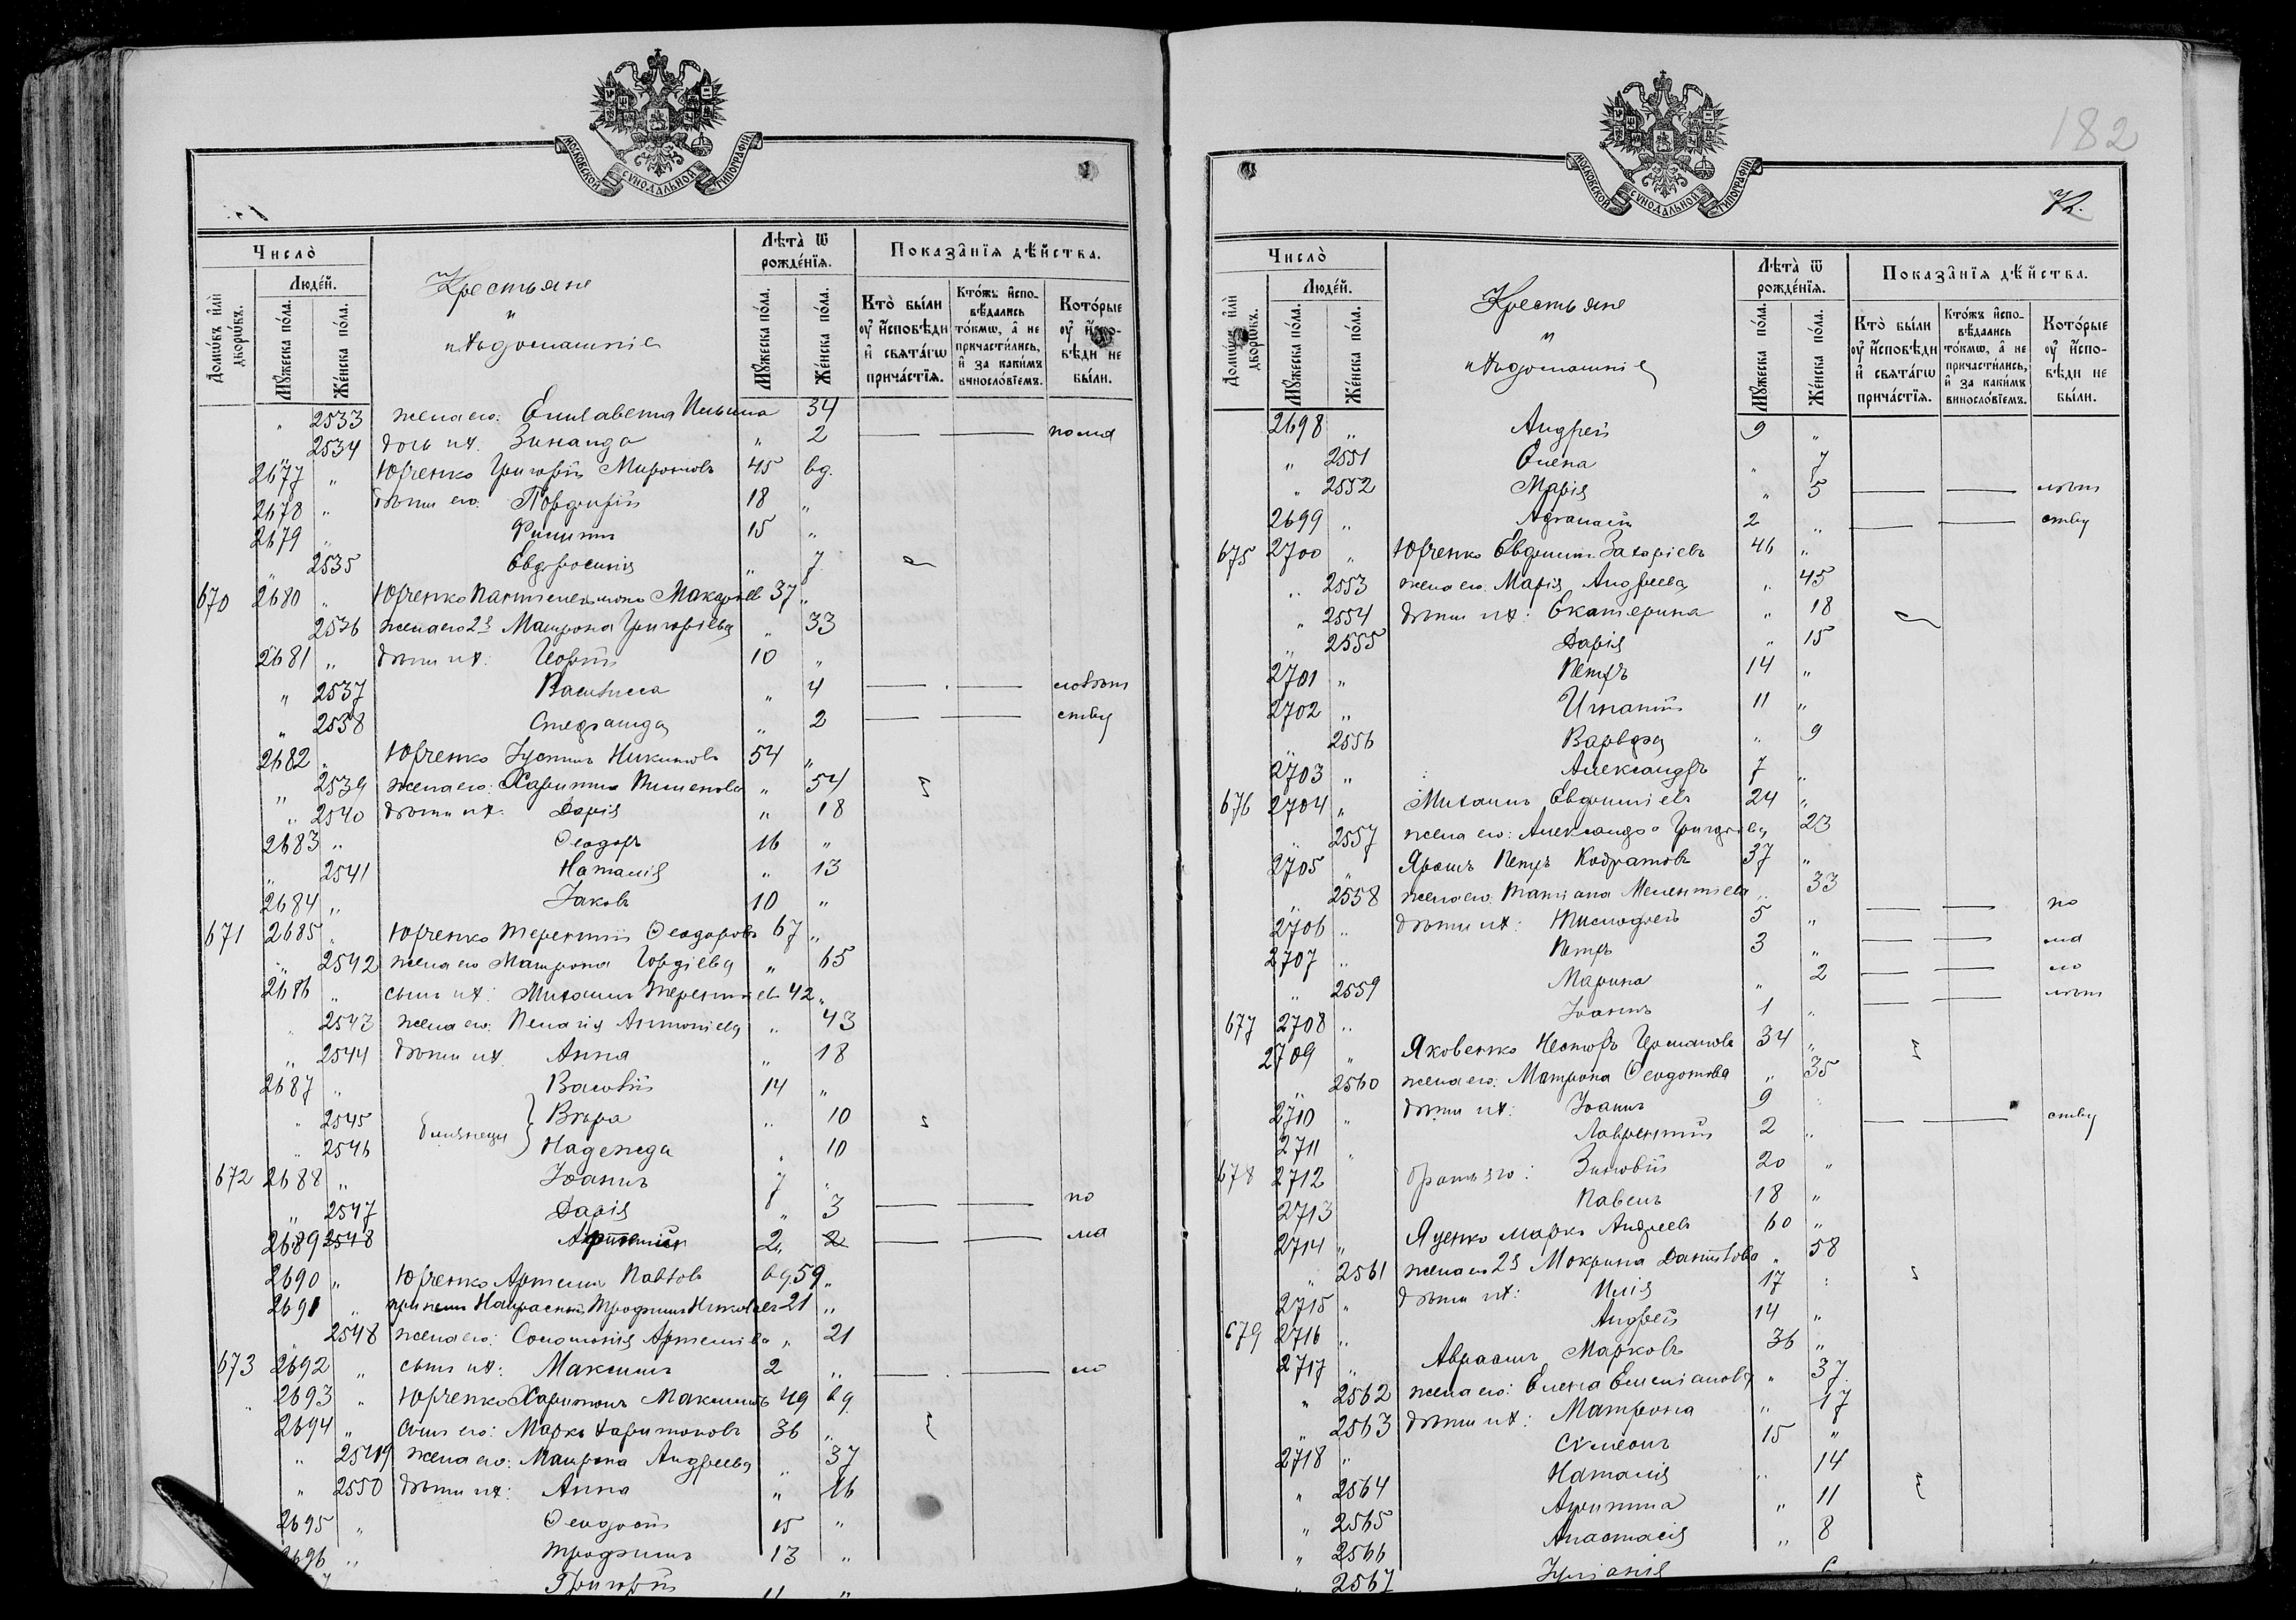 МОСКОВСКОЙ СѴНОДАЛЬНОЙ ТИПОГРАФІИ
Число̀
Домѡ́въ и҆лѝ дворѡ́въ.
Люде́й.
Мꙋ́жеска по́ла.
Же́нска по́ла.
Крестьяне
и
ихъ домашніе
Лѣта̀ ѿ рожде́нїѧ.
Мꙋ́жеска по́ла.
Же́нска по́ла.
Показа̑нїѧ дѣ́йства.
Кто̀ бы́ли оу҆ и҆́сповѣди и҆ свѧта́гѡ прича́стїѧ.
Кто́жъ и҆спо-вѣ́дались то́кмѡ, а҆ не причасти́лись, и҆ за каки́мъ виносло́вїемъ.
Кото́рые оу҆ и҆́спо-вѣди не бы́ли.
" 2533 жена его: Елисавета Ильина 34
2534 дочь их. Зинаида " 2 — — по мал
2677 " Юрченко Григорій Мироновъ 45 вд.
2678 " дѣти его: Порфирій 18 "
2679 " Филиппъ 15 "
" 2535 Евфросинія " 7
670 2680 " Юрченко Пантелеимонъ Макаріевъ 37 "
2536 жена его 2я Матрона Григоріева " 33
2681 " дѣти их: Георгій 10 "
" 2537 Василисса " 4 — — лолѣт
" 2538 Стефанида " 2 — — ству
2682 " Юрченко Іустинъ Никитовъ 54 "
" 2539 жена его: Харитина Пименова " 54
" 2540 дѣти их: Дарія " 18
2683 " Ѳеодоръ 16 "
" 2541 Наталія " 13
2684 " Іаковъ 10 "
671 2685 " Юрченко Терентій Ѳеодоровъ 67 "
" 2542 жена его Матрона Гордіева " 65
2686 " сынъ их: Михаилъ Терентіевъ 42 "
" 2543 жена его: Пелагія Антоніева " 43
" 2544 дѣти их Анна " 18
2687 " Василій 14 "
" 2545 близнецы Вѣра " 10
" 2546 Надежда " 10
672 2688 " Іоаннъ 7 "
" 2547 Дарія " 3 — — по
2689 2548 2 2 — — мал
2690 " Юрченко Артемій Павловъ вд 59 "
2691 " Трофимъ 21 "
" 2548 жена его: Соломонія Артеміева " 21
673 2692 " сынъ их: Максимъ 2 " — — ло
" 2693 " Юрченко Харитонъ Максимовъ 49 вд
2694 " сынъ его: Маркъ Харитоновъ 36 "
" 2549 жена его: Матрона Андреева " 37
" 2550 дѣти их: Анна " 16
2695 " Ѳеодосій 15 "
2696 " Трофимъ 13 "
Григорій 11 "
182
МОСКОВСКОЙ СѴНОДАЛЬНОЙ ТИПОГРАФІИ
Число̀
Домѡ́въ и҆лѝ дворѡ́въ.
Люде́й.
Мꙋ́жеска по́ла.
Же́нска по́ла.
Крестьяне
и
ихъ домашніе
Лѣта̀ ѿ рожде́нїѧ.
Мꙋ́жеска по́ла.
Же́нска по́ла.
Показа̑нїѧ дѣ́йства.
Кто̀ бы́ли оу҆ и҆́сповѣди и҆ свѧта́гѡ прича́стїѧ.
Кто́жъ и҆спо-вѣ́дались то́кмѡ, а҆ не причасти́лись, и҆ за каки́мъ виносло́вїемъ.
Кото́рые оу҆ и҆́спо-вѣди не бы́ли.
2698 " Андрей 9 "
" 2551 Елена " 7
" 2552 Марія " 5 — — лѣт
2699 " Афанасій 2 " — — ству
675 2700 " Юрченко Евфимій Захаріевъ 46 "
" 2553 жена его: Марія Андреева " 45
" 2554 дѣти их: Екатерина " 18
" 2555 Дарія " 15
2701 " Петръ 14 "
2702 " Игнатій 11 "
" 2556 Варвара " 9
2703 " Александръ 7 "
676 2704 " Михаилъ Евфиміевъ 24 "
" 2557 жена его: Александра Григоріева 23
2705 " Ярошъ Петръ Кодратовъ 37 "
" 2558 жена его: Татіана Мелентіева " 33
2706 " дѣти их: 5 " — — по
2707 " Петръ 3 " — — мал
" 2559 Марина " 2 — — ло
677 2708 " Іоаннъ 1 " — — лѣт
2709 " Яковенко Несторъ Германовъ 34 "
" 2560 жена его: Матрона Ѳеодотова " 35
2710 " дѣти их: Іоаннъ 9 "
2711 " Лаврентій 2 " — — ству
678 2712 братья его: Зиновій 20 "
2713 Павелъ 18 "
2714 " Яценко Маркъ Андреевъ 60 "
" 2561 жена его 2я Мокрина Даниилова " 58
2715 " дѣти их: Илія 17 "
679 2716 " Андрей 14 "
2717 " Авраамъ Марковъ 36 "
" 2562 жена его: Елена Емеліанова " 37
" 2563 дѣти их: Матрона " 17
2718 " Сѵмеонъ 15 "
" 2564 Наталія " 14
" 2565 " 11
" 2566 Анастасія " 8
" 2567 Іуліанія 6